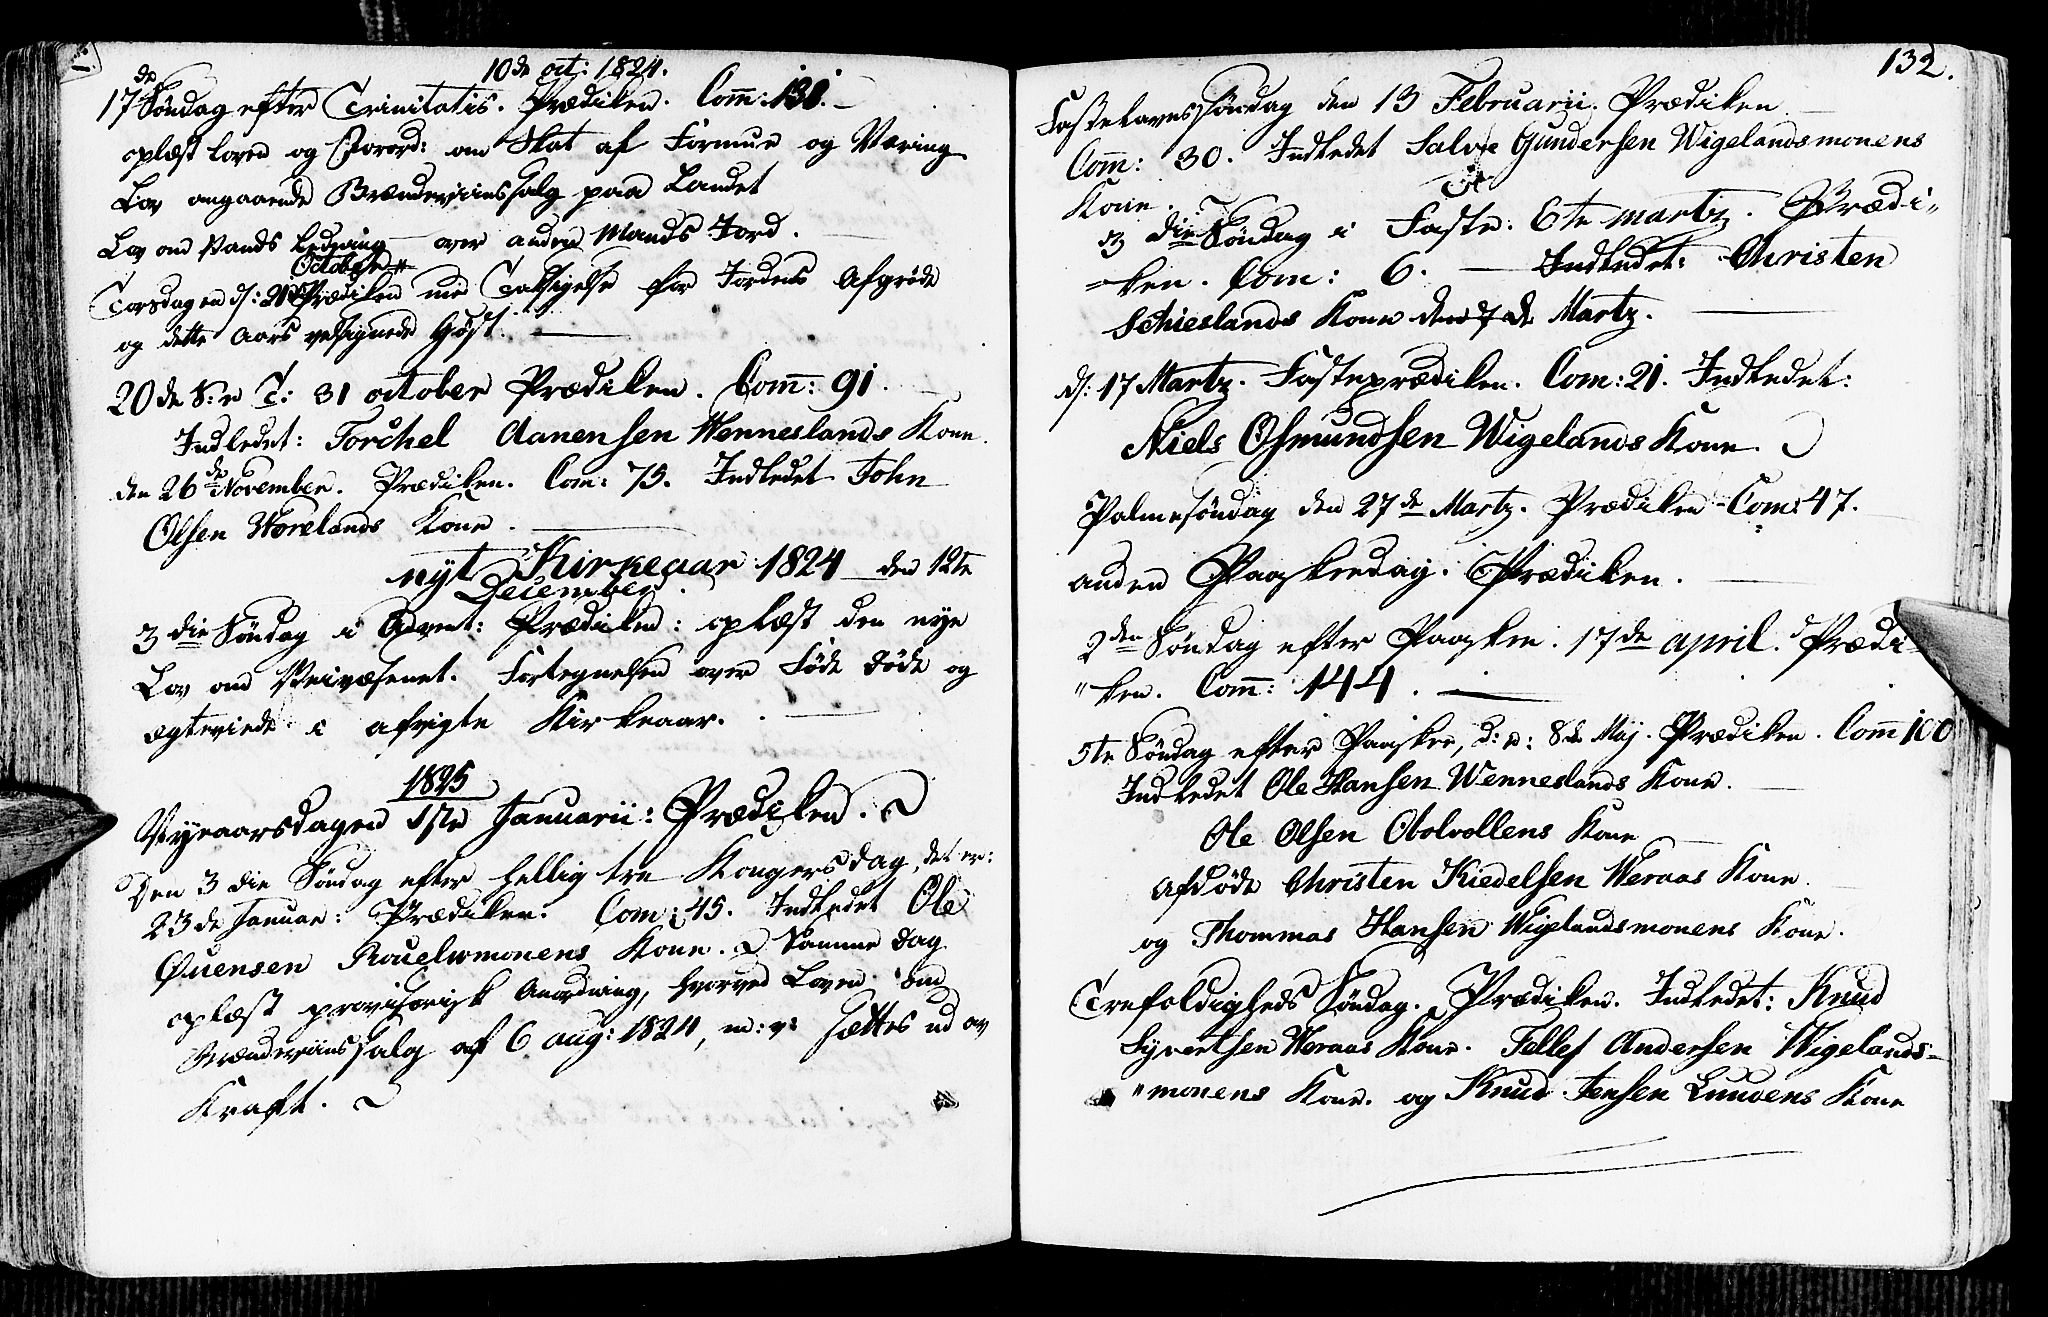 10de oct: 1824.
17de Søndag efter Trinitatis. Prædiken. Com̄: 131.
oplæst Loven og Forord: om Skat af Formue og Næring
Lov angaaende Brændeviinssalg paa Landet
Lov om Vands Ledning over anden Mands Jord.
October
Torsdagen d: 21de Prædiken med Taksigelse for Jordens Afgrøde
og dette Aars velsignede Høst.
20de S: e T: 31 october Prædiken. Com̄: 91.
Indledet: Torchel Aanensen Wenneslands Kone.
den 26de November. Prædiken. Com: 75. Indledet John
Olsen Horelands Kone.
nyt Kirkeaar 1824 den 12te
December.
3die Søndag i Advent: Prædiken: oplæst den nye
Lov om Veivæsenet. Fortegnelsen over Føde Døde og
ægteviede i afvigte Kirkeaar.
1825
Nyeaarsdagen 1ste Januarii: Prædiken.
Den 3die Søndag efter hellig tre Kongers Dag, det er:
23de Januar: Prædiken. Com: 45. Indledet Ole
Ouensen Rouelwmonens Kone. Samme Dag
oplæst provisorisk Anordning, hvorved Loven om
Brændeviinssalg af 6 aug: 1824, m: v: sættes ud av
Kraft.
132.
Fastelavnssøndag den 13 Februarii. Prædiken
Com̄: 30. Indledet Salve Gundersen Wigelandsmonens
Kone.
3die Søndag i Faste: 6te martz. Prædi-
ken. Com: 6. Indledet: Christen
Schieslands Kone den 7de Martz.
d: 17 Martz. Fasteprædiken. Com: 21. Indledet:
Niels Osmundsen Wigelands Kone.
Palmesøndag den 27de Martz. Prædiken Com: 47.
anden Paaskedag. Prædiken.
2den Søndag efter Paasken. 17de april. Prædi-
ken. Com̄: 144.
5te Søndag efter Paasken, d: e: 8de Maj. Prædiken. Com̄ 100
Indledet Ole Hansen Wenneslands Kone.
Ole Olsen Obolvollens Kone
Afdøde Christen Kiedelsen Heraas Kone.
og Thommas Hansen Wigelandsmonens Kone.
Trefoldigheds Søndag. Prædiken. Indledet: Knud
Syvertsen Heraas Kone. Tellef Andersen Wigelands-
monens Kone. og Knud Jensen Lundens Kone